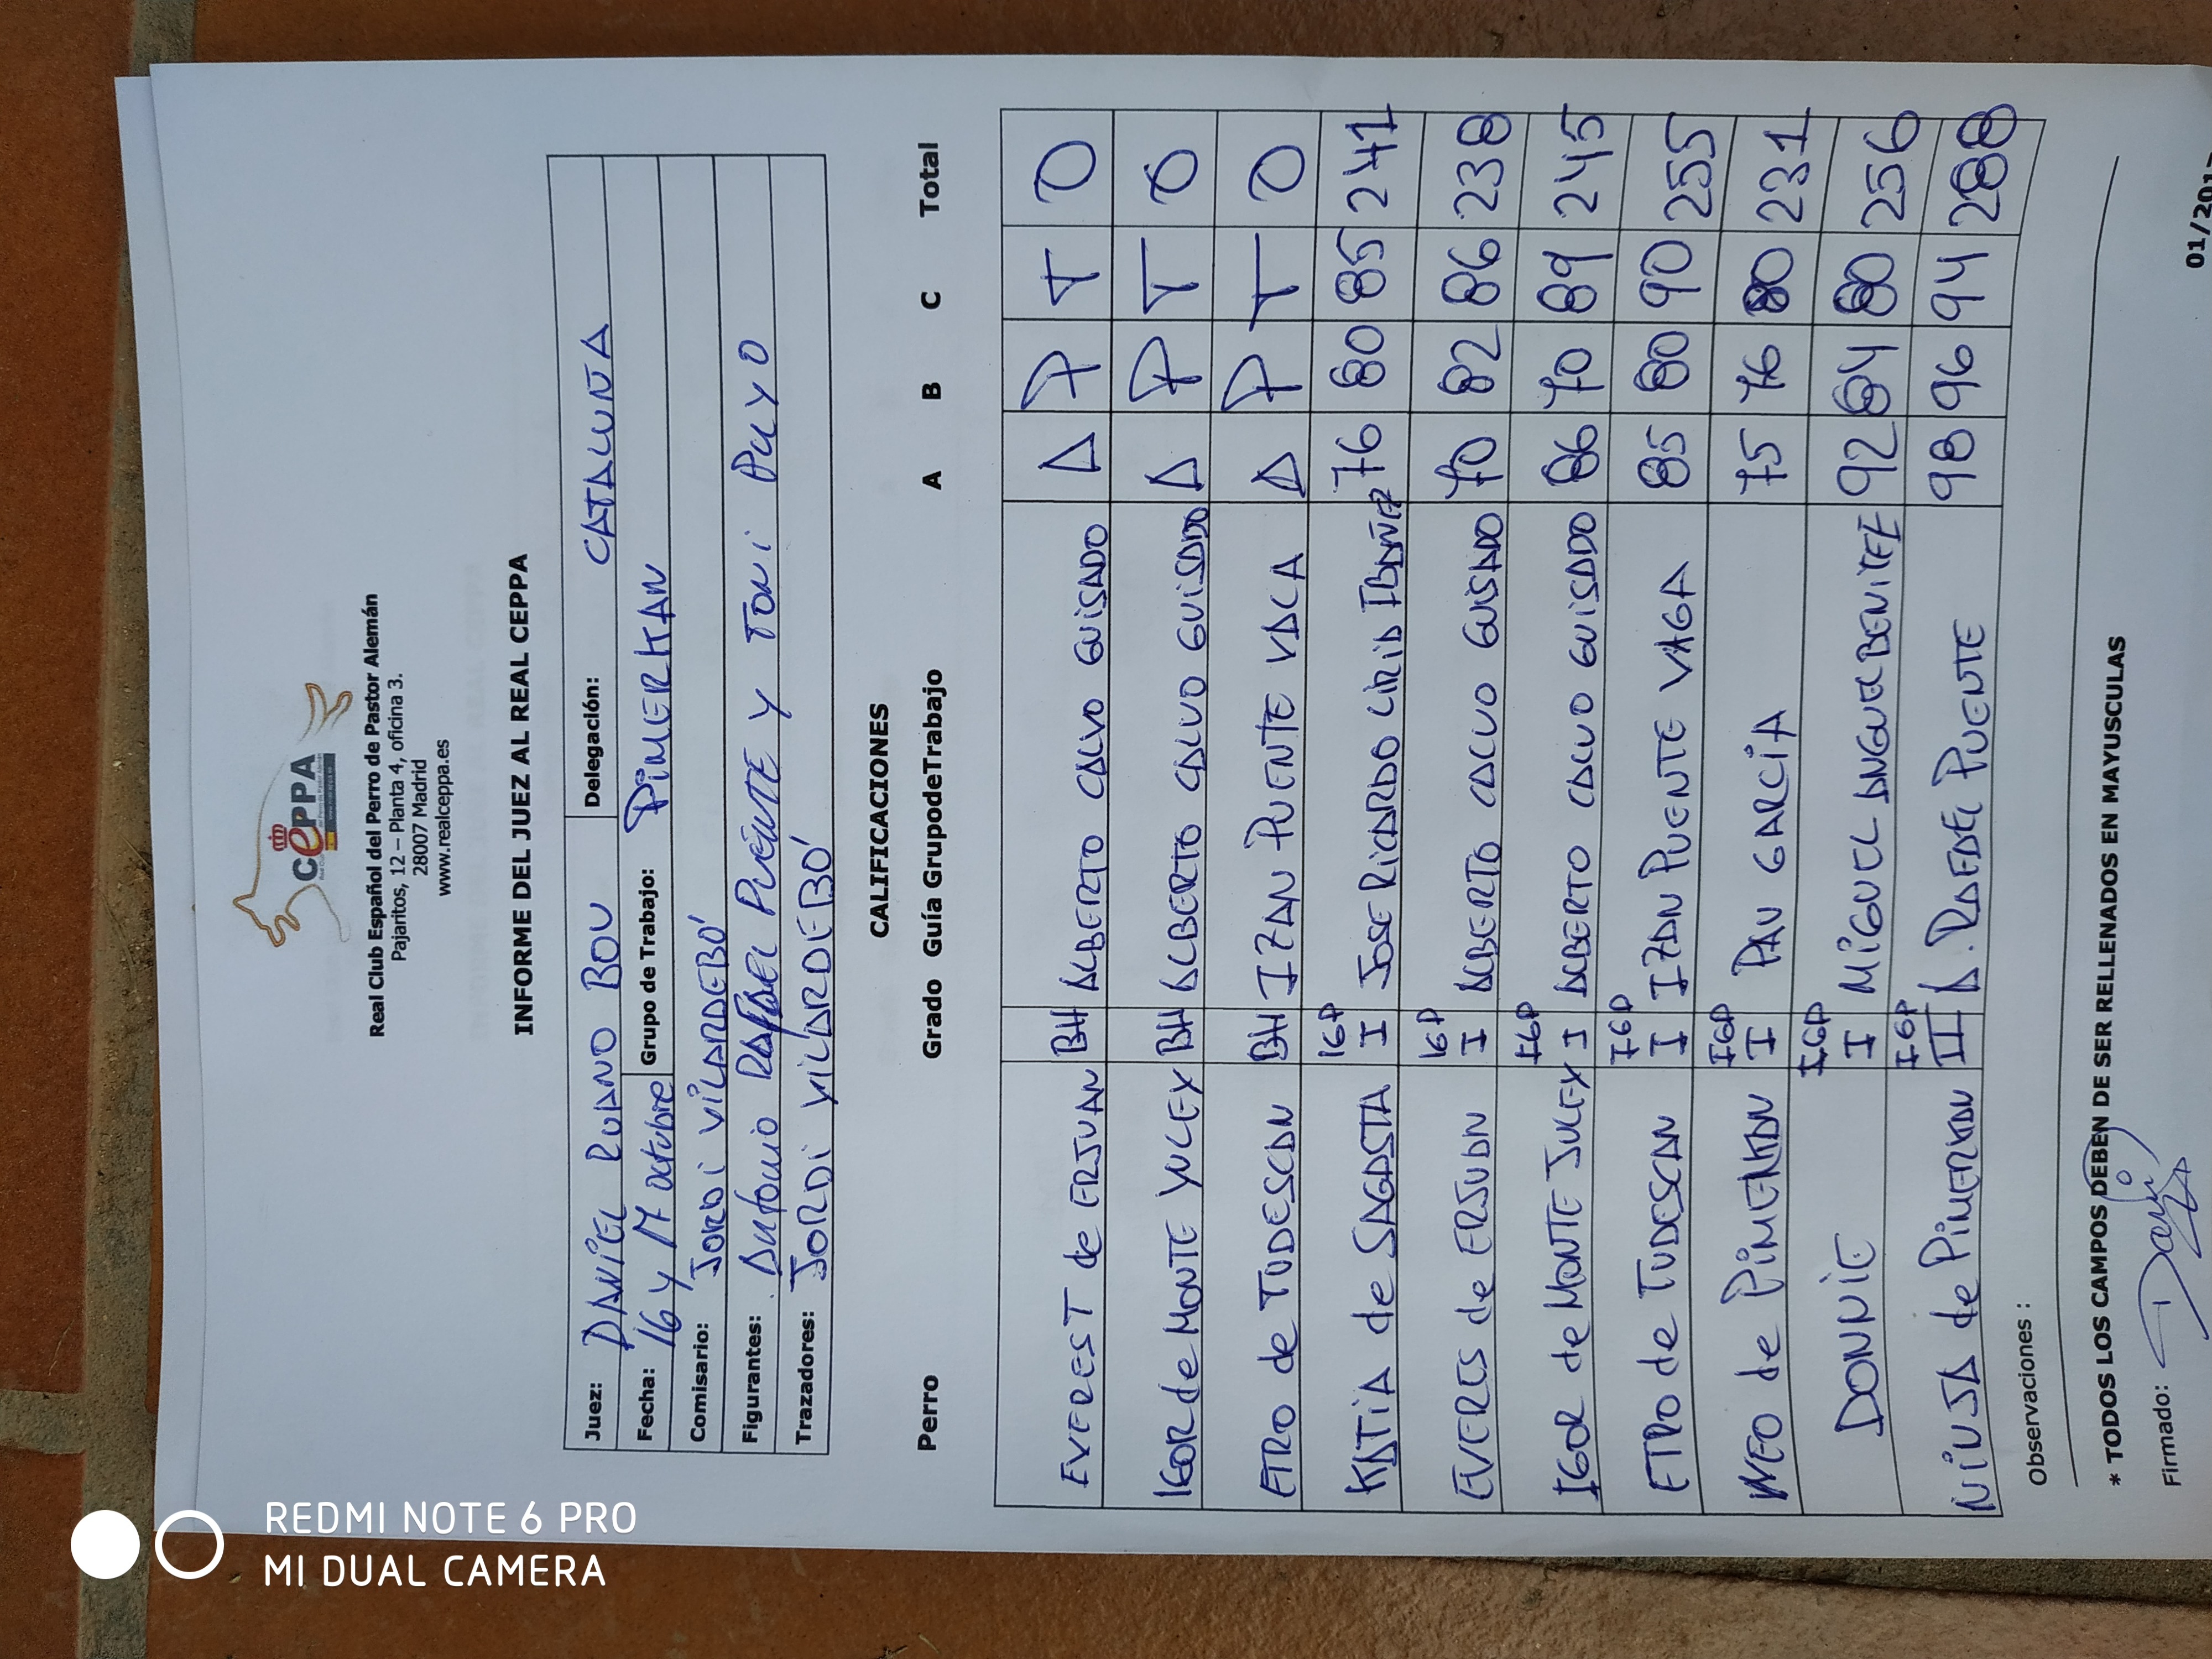 CEPPA
Real Club Español del Perro de Pastor Alemán
Pajaritos, 12 – Planta 4, oficina 3.
28007 Madrid
www.realceppa.es
INFORME DEL JUEZ AL REAL CEPPA
Juez: DANIEL RUANO BOU Delegación: CATALUÑA
Fecha: 16 y 17 octubre Grupo de Trabajo: PIMERKAN
Comisario: JORDI VILARDEBÓ
Figurantes: Antonio RAFAEL PUENTE Y TONI PUYO
Trazadores: JORDI VILARDEBÓ
CALIFICACIONES
Perro Grado Guía GrupodeTrabajo A B C Total
EVEREST de ERJUAN BH ALBERTO CALVO GUISADO A P T O
IGOR de MONTE YULEX BH ALBERTO CALVO GUISADO A P T O
ETRO de TUDESCAN BH IZAN PUENTE VACA A P T O
KATIA de SAGASTA IGP I JOSE RICARDO LIRIA IBAÑEZ 76 80 85 241
EVERES de ERJUAN IGP I ALBERTO CALVO GUISADO 70 82 86 238
IGOR de MONTE JULEX IGP I ALBERTO CALVO GUISADO 86 70 89 245
ETRO de TUDESCAN IGP I IZAN PUENTE VAGA 85 80 90 255
NEO de PIMENKAN IGP I PAU GARCÍA 75 76 80 231
DONNIE IGP I MIGUEL ANGUEL BENITEZ 92 84 80 256
NIUSA de PIMERKAN IGP III A. RAFAEL PUENTE 98 96 94 288
Observaciones :
* TODOS LOS CAMPOS DEBEN DE SER RELLENADOS EN MAYUSCULAS
Firmado:
REDMI NOTE 6 PRO
MI DUAL CAMERA